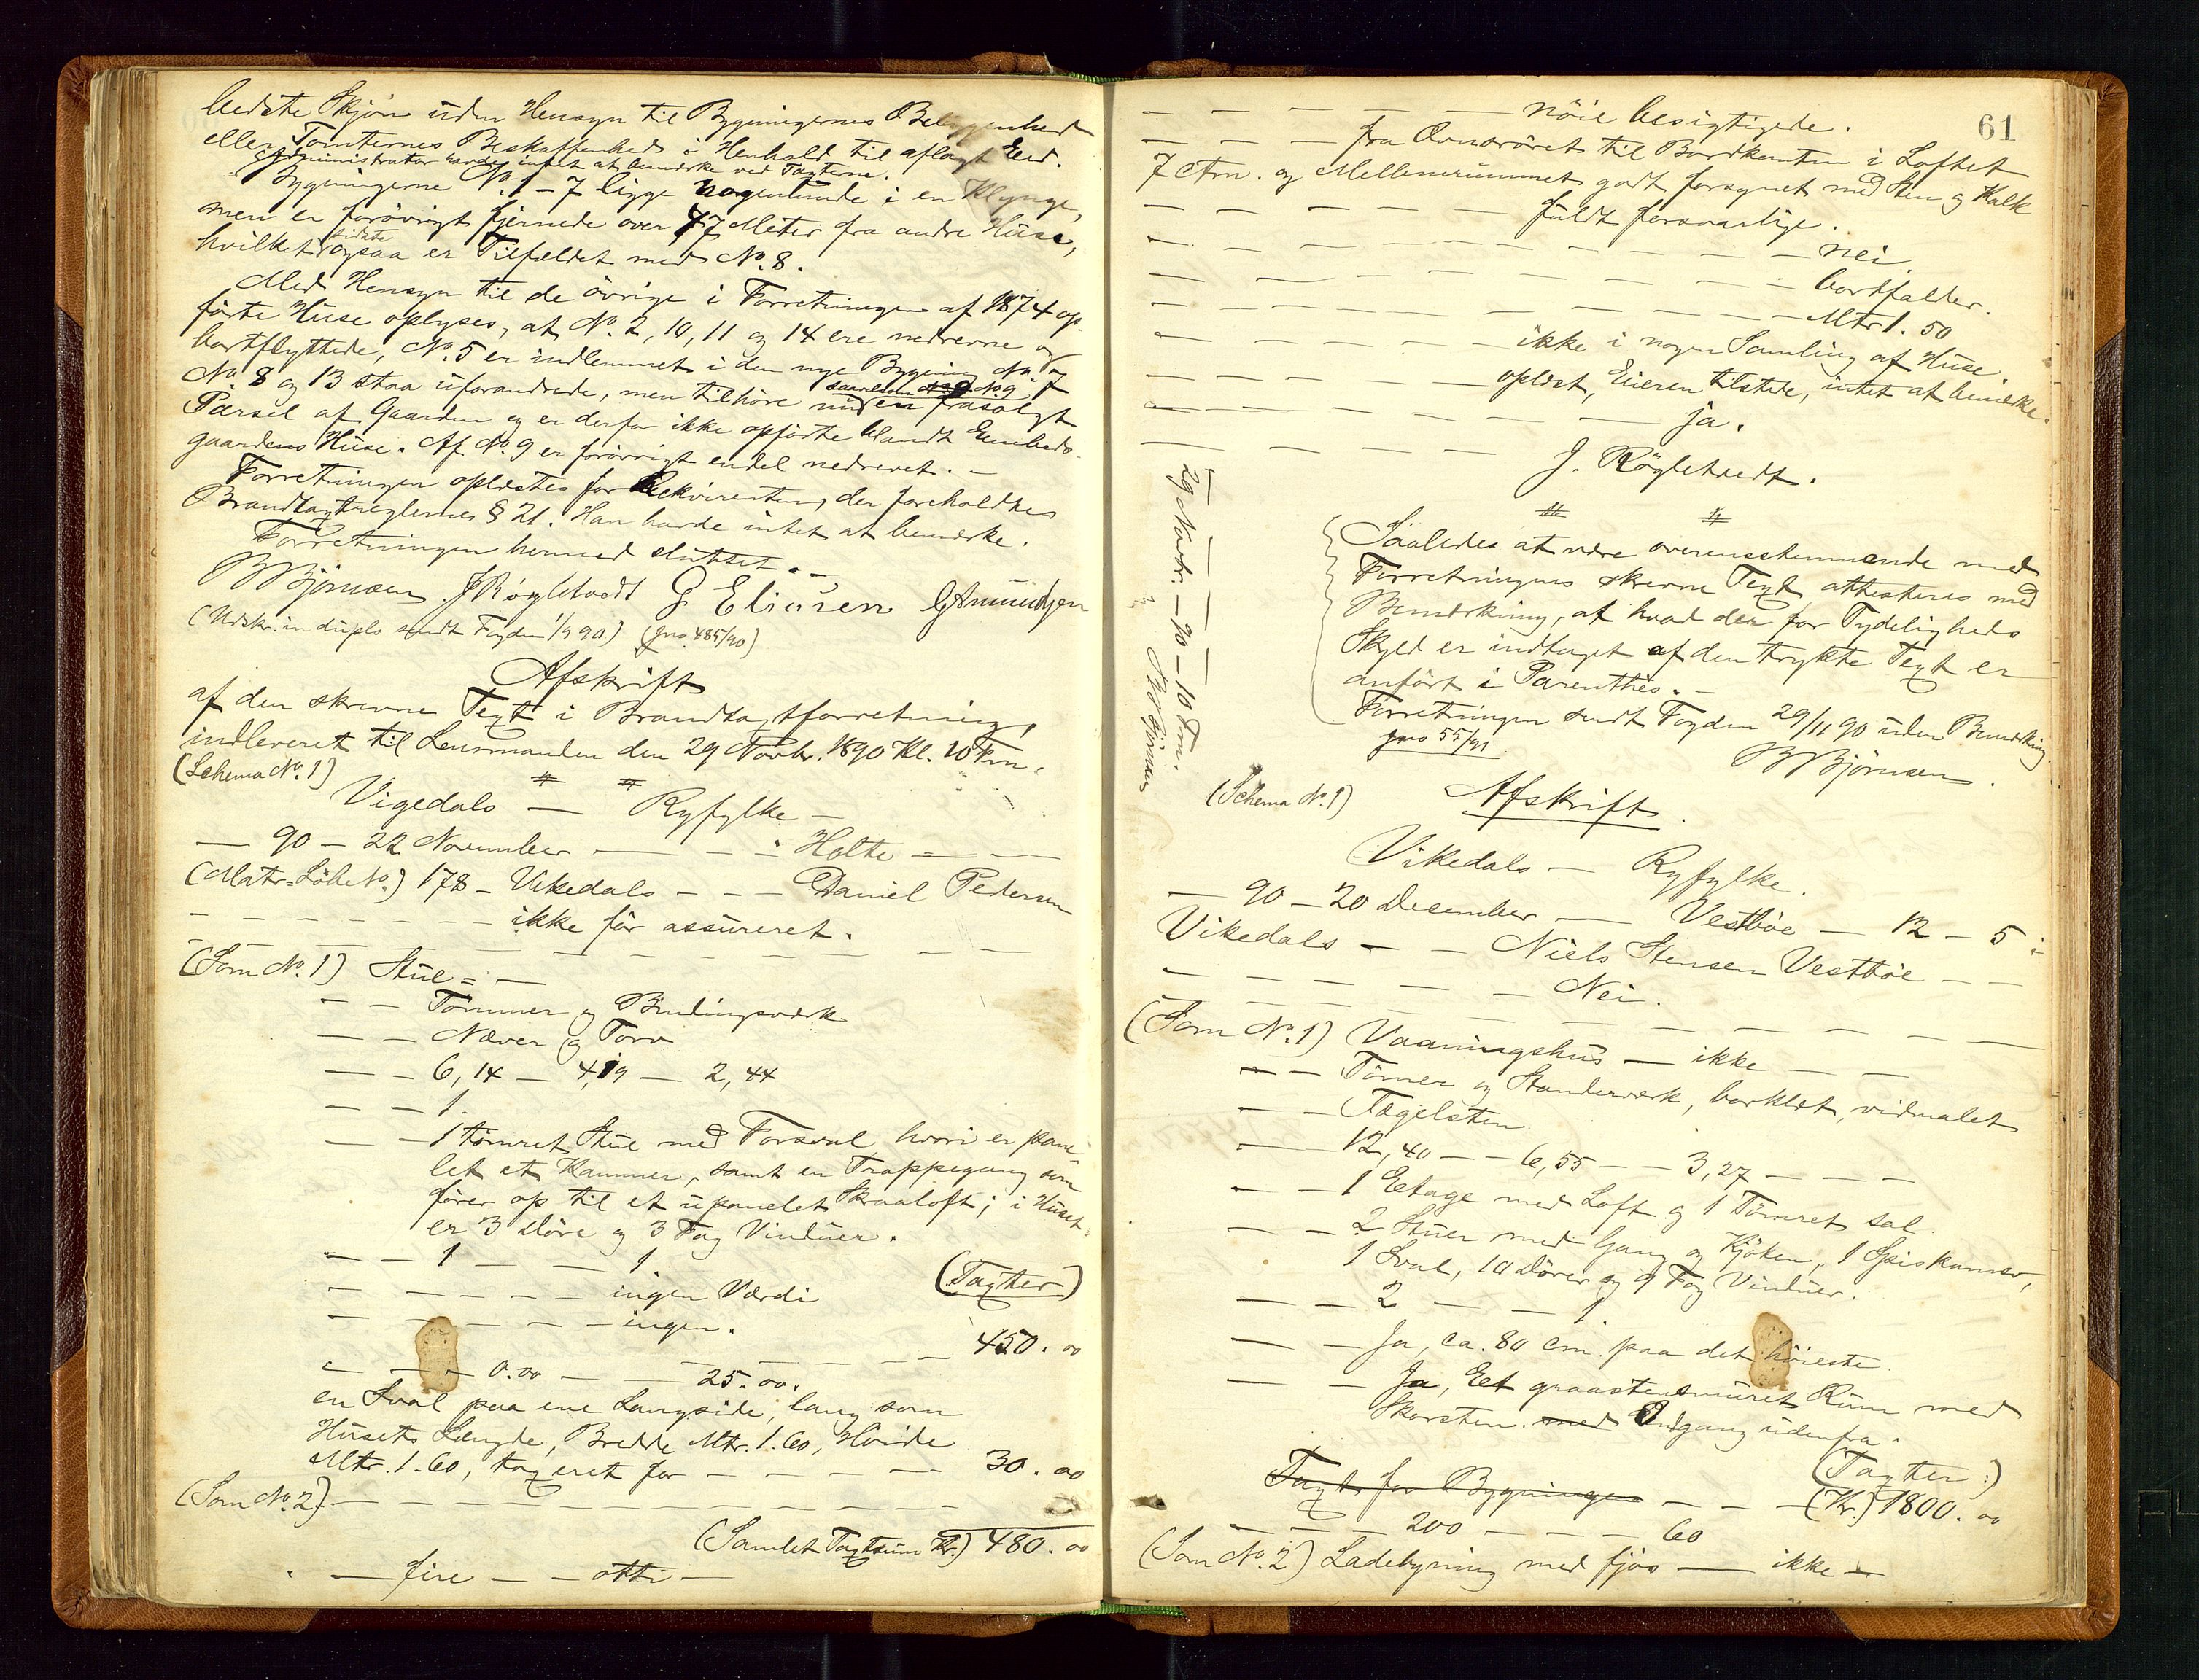 bedste Skjøn uden Hensyn til Bygningernes Beliggenhed
eller Tomternes Beskaffenhed i Henhold til aflagt Eed.
Administrator havde intet at bemærke ved Taxterne.
Bygningerne No. 1 - 7 ligge nogenlunde i en Klynge,
men er forøvrigt fjernede over 77 Meter fra andre Huse,
hvilket sidste ogsaa er Tilfældet med No. 8.
Med Hensyn til de øvrige i Forretningen af 1874 op-
førte Huse oplyses, at No. 2, 10, 11 og 14 ere nedrevne og
bortflyttede, No. 5 er indlemmet i den nye Bygning No. 7
No. 8 og 13 staa uforandrede, men tilhøre nu saavelsom No. 9 en frasolgt
Parsel af Gaarden og er derfor ikke opførte blandt Embeds-
gaardens Huse. Af No. 9 er forøvrigt endel nedrevet. -
Forretningen oplæstes for Rekvirenten, der foreholdtes
Brandtaxtreglernes § 21. Han havde intet at bemærke.
Forretningen hermed sluttet. -
B Bjørnsen. J Røgletvedt G Eliasen G Amundsen
(Udskr. in duplo sendt Fogden 1/9 90) (Jno. 485/90)
Afskrift
af den skrevne Text i Brandtaxtforretning,
indleveret til Lensmanden den 29 Novbr. 1890 Kl. 10 Fm.
(Schema No. 1)
Vigedals — Ryfylke —
— 90 — 22 November — — — Holte — —
(Matr = Løbe No.) 178 - Vikedals - - - Daniel Pedersen
- - - - - - - - ikke før assureret.
(Som No. 1) Stue = —
— — Tømmer og Bindingsværk
— — Næver og Torv
— — 6,14 — 4,19 — 2,44
— — 1.
— — 1 tømret Stue med Forsval hvori er pane-
let et Kammer, samt en Trappegang som
fører op til et upanelet Skraaloft; i Huset
er 3 Døre og 3 Fag Vinduer.
— — 1 — — 1
— — — — — ingen Værdi (Taxter)
— — — — — ingen.
450.00
— — — 0.00 — — 25.00.
en Sval paa ene Langside, lang som
Husets Længde, Bredde Mtr. 1.60, Høide
Mtr. 1.60, taxeret for — — — — — 30.00
(Som No. 2) — — — — — — — — —
(Samlet Taxtsum Kr.) 480.00
— fire — — otti —
61
— — — — — nöie besigtigede.
— — — — fra Ovnsröret til Bordkanten i Loftet
7 Cm. og Mellemrummet godt forsynet med Sten og Kalk
— — — — — — fuldt forsvarlige.
— — — — — — — — — nei
— — — — — — — — — bortfalder.
— — — — — — — — — Mtr 1.50
— — — — — — ikke i nogen Samling af Huse
— — — — — — oplæst, Eieren tilstede, intet at bemærke.
— — — — — — — — ja.
— — — — — — J. Røgletvedt.
29 Novbr. — 90 — 10 Fm.
B Bjørnsen
Saaledes at være overensstemmende med
Forretningens skrevne Text attesteres med
Bemærkning, at hvad der for Tydeligheds
Skyld er indtaget af den trykte Text er
anført i Parenthes. —
Forretningen sendt Fogden 29/11 90 uden Bemærkning
Jno 55/91
B Bjørnsen.
(Schema No. 1) Afskrift.
Vikedals — Ryfylke.
— 90 — 20 December — Vestbøe — 12 — 5 i
Vikedals — — Niels Stensen Vestbøe — —
— — — — — — Nei.
(Som No. 1) Vaaningshus — ikke — —
— — Tømer og Standerværk, bordklæt, vidmalet
— — Tægelsten
— — 12,40 — — 6,55 — — 3,27 — — —
— — 1 Eetage med Loft og 1 Tømret sal.
— — 2 Stuer med Gang og Kjøken, 1 Spiskamer,
1 Sval, 10 Dører og 9 Fag Vinduer.
— — 2 — — 1
— — Ja, ca. 80 cm. paa det höieste.
— — Ja, Eet graastensmuret Rum med
Skorsten. med Indgang udenfra.
(Taxter:)
Taxt for Bygningen — — — (Kr.) 1800.00
— — — 200 — — — 60
(Som No. 2) Ladebyning med fjøs — ikke —